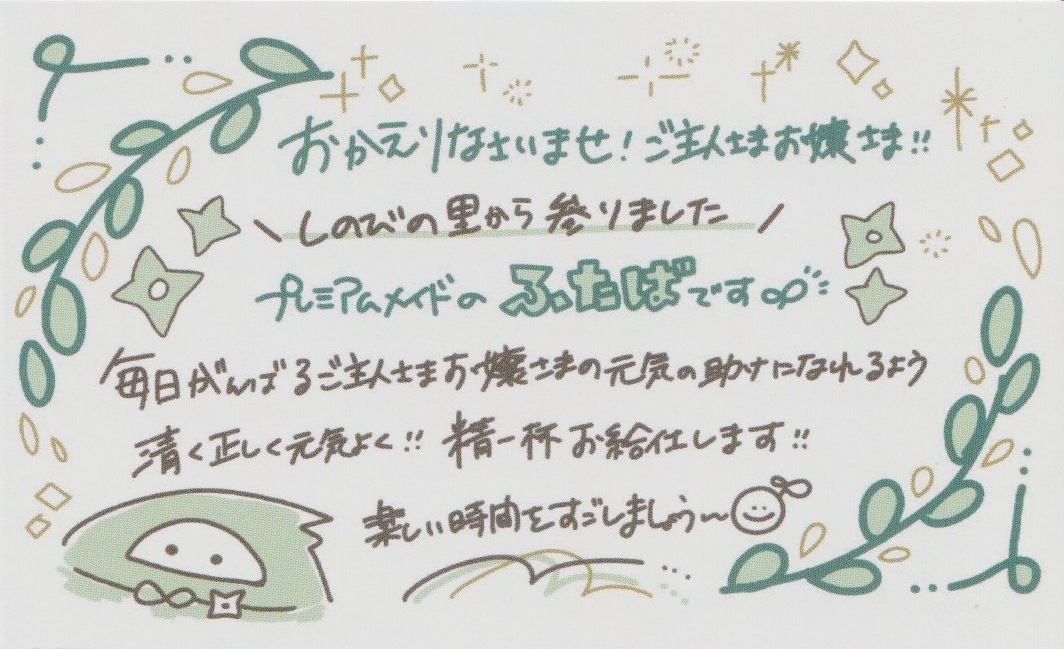 おかえりなさいませ！ご主人さまお嬢さま!!
\ しのびの里から参りました /
プレミアムメイドのふたばです
毎日がんばるご主人さまお嬢さまの元気の助けになれるよう
清く正しく元気よく!! 精一杯お給仕します!!
楽しい時間をすごしましょう〜